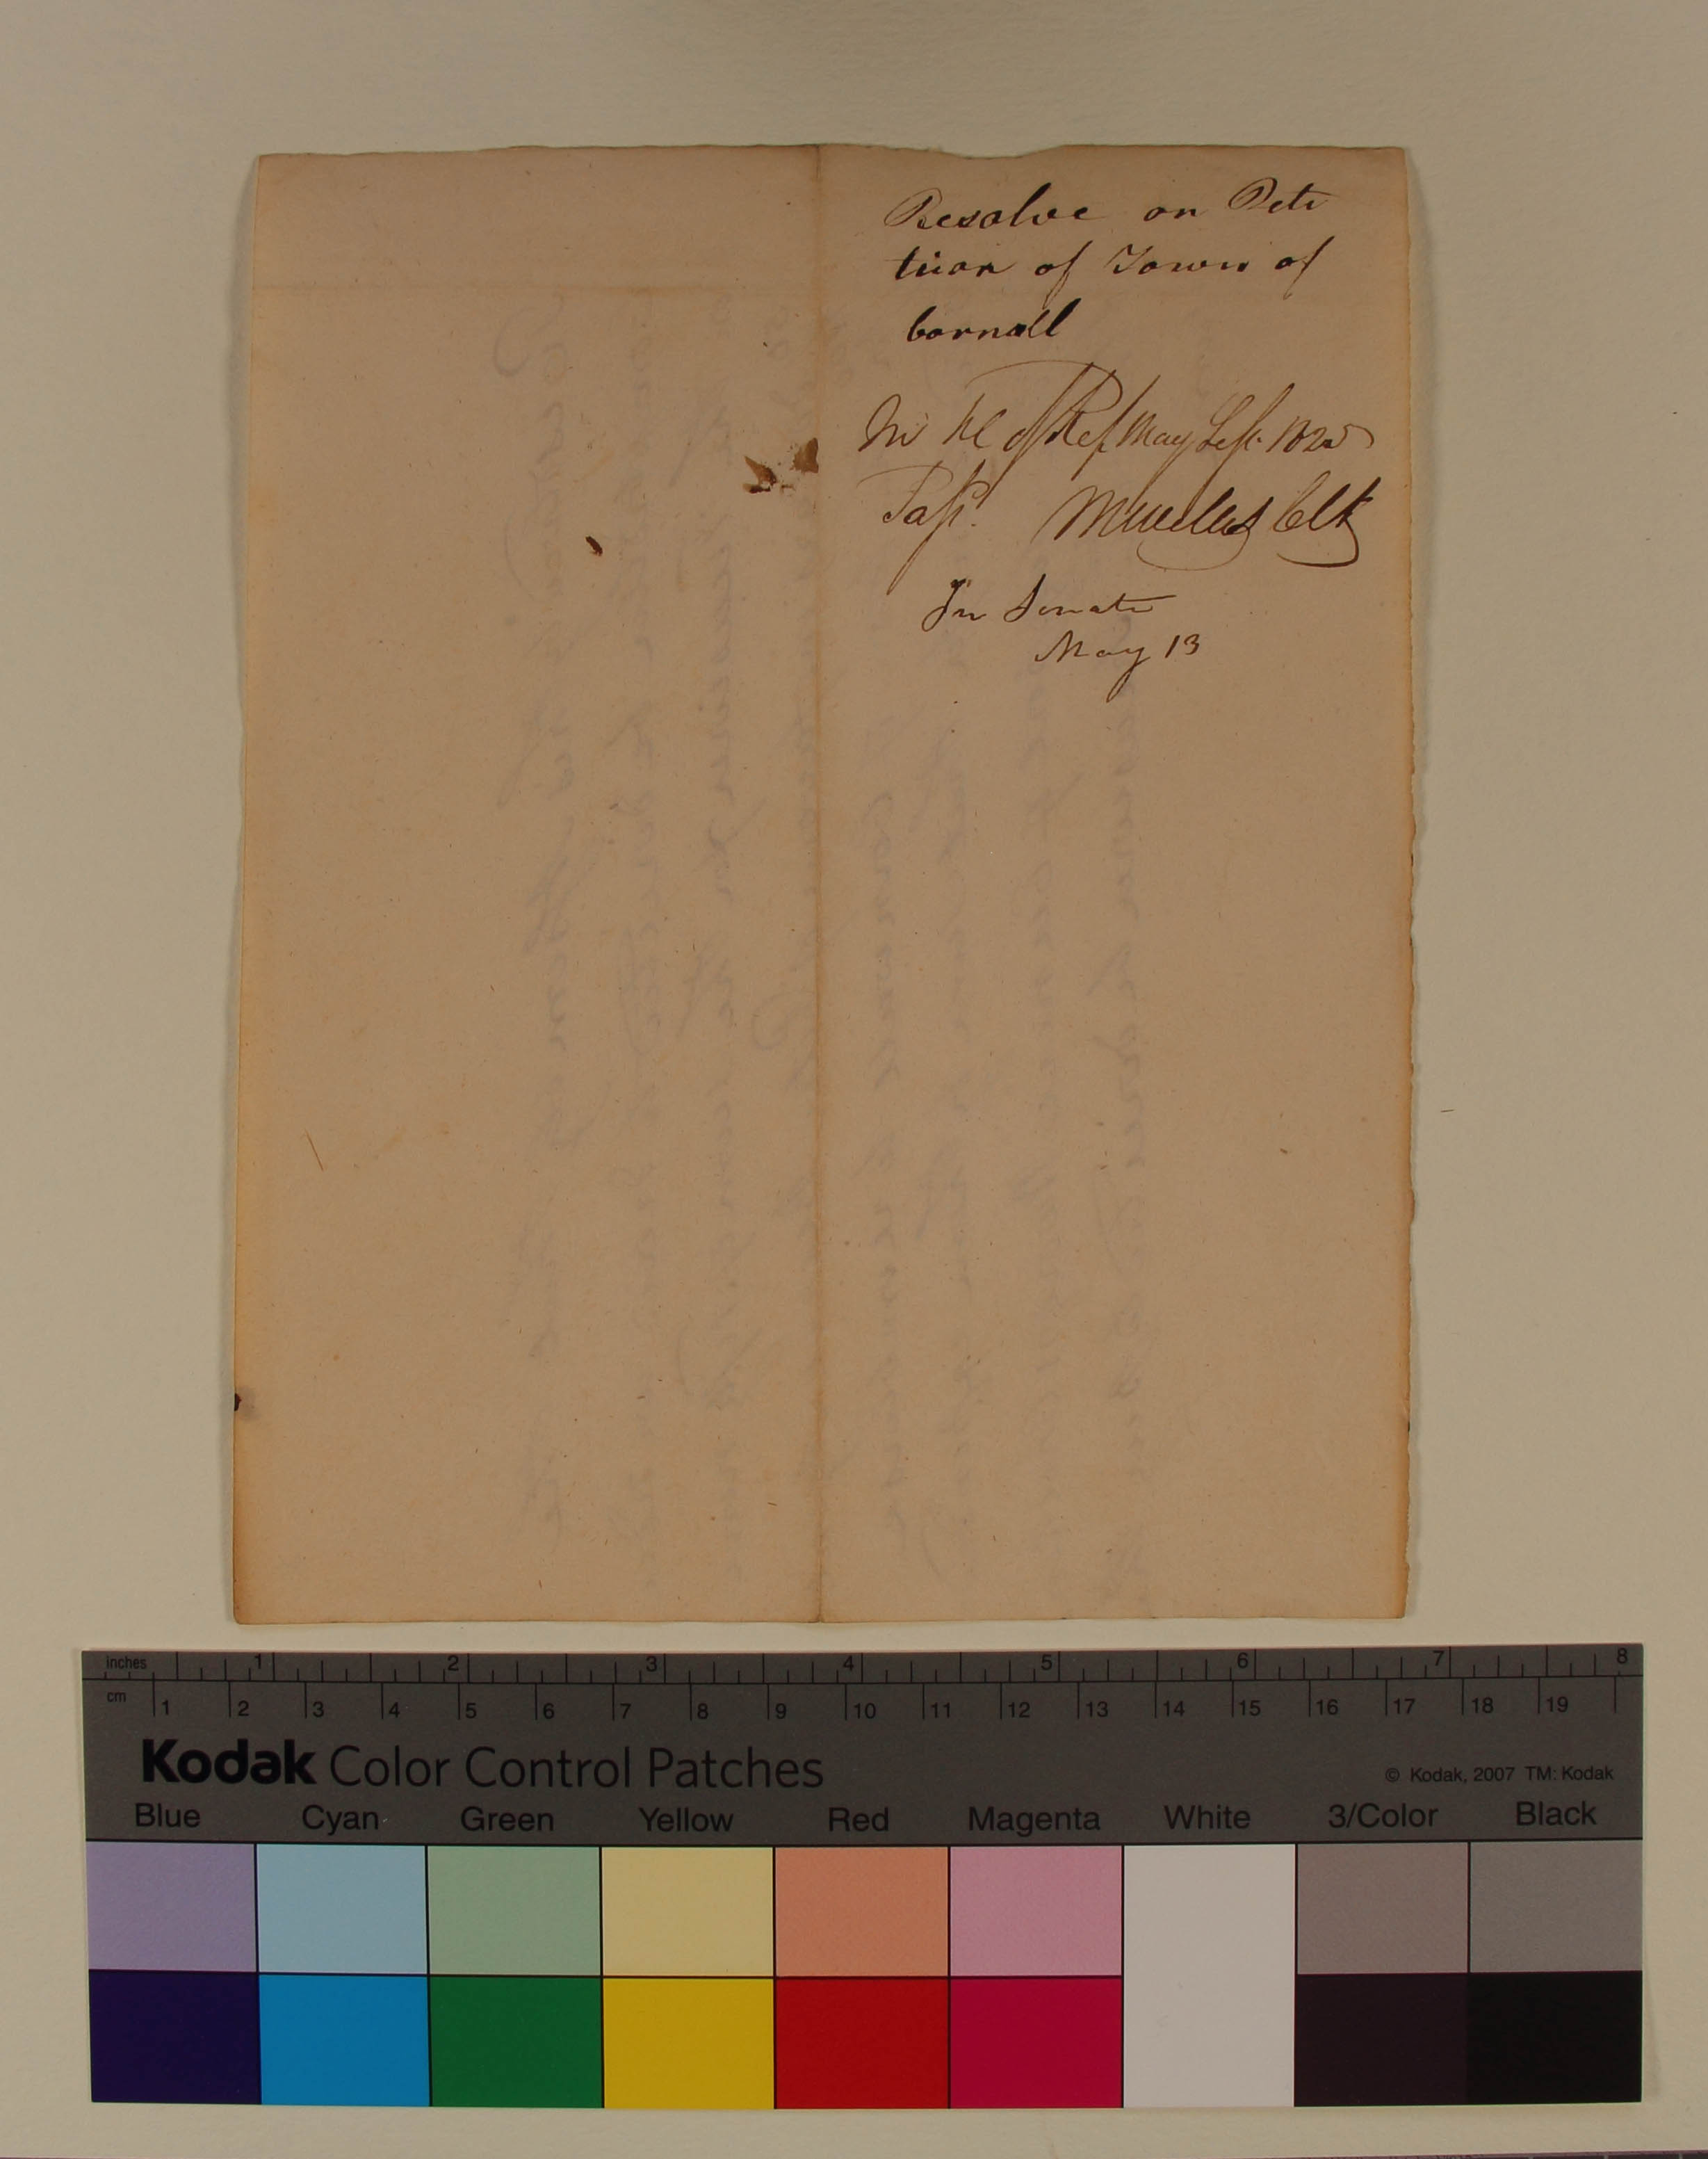 Resolve on Peti
tion of Town of
Cornwall
In Ho of Rep May Sess. 1820
Pass'd. Clk
In Senate
May 13
inches 1 2 3 4 5 6 7 8
cm 1 2 3 4 5 6 7 8 9 10 11 12 13 14 15 16 17 18 19
Kodak Color Control Patches
© Kodak, 2007 TM: Kodak
Blue Cyan Green Yellow Red Magenta White 3/Color Black